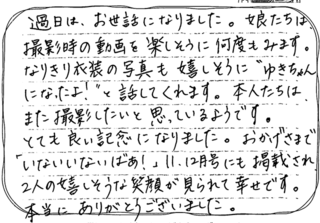 過日は、お世話になりました。娘たちは、
撮影時の動画を楽しそうに何度もみます。
なりきり衣装の写真も嬉しそうに"ゆきちゃん
になったよ!"と話してくれます。本人たちは、
また撮影したいと思っているようです。
とても良い記念になりました。おかげさまで
「いないいないばあ!」11.12月号にも掲載され
2人の嬉しそうな笑顔が見られて幸せです。
本当にありがとうございました。